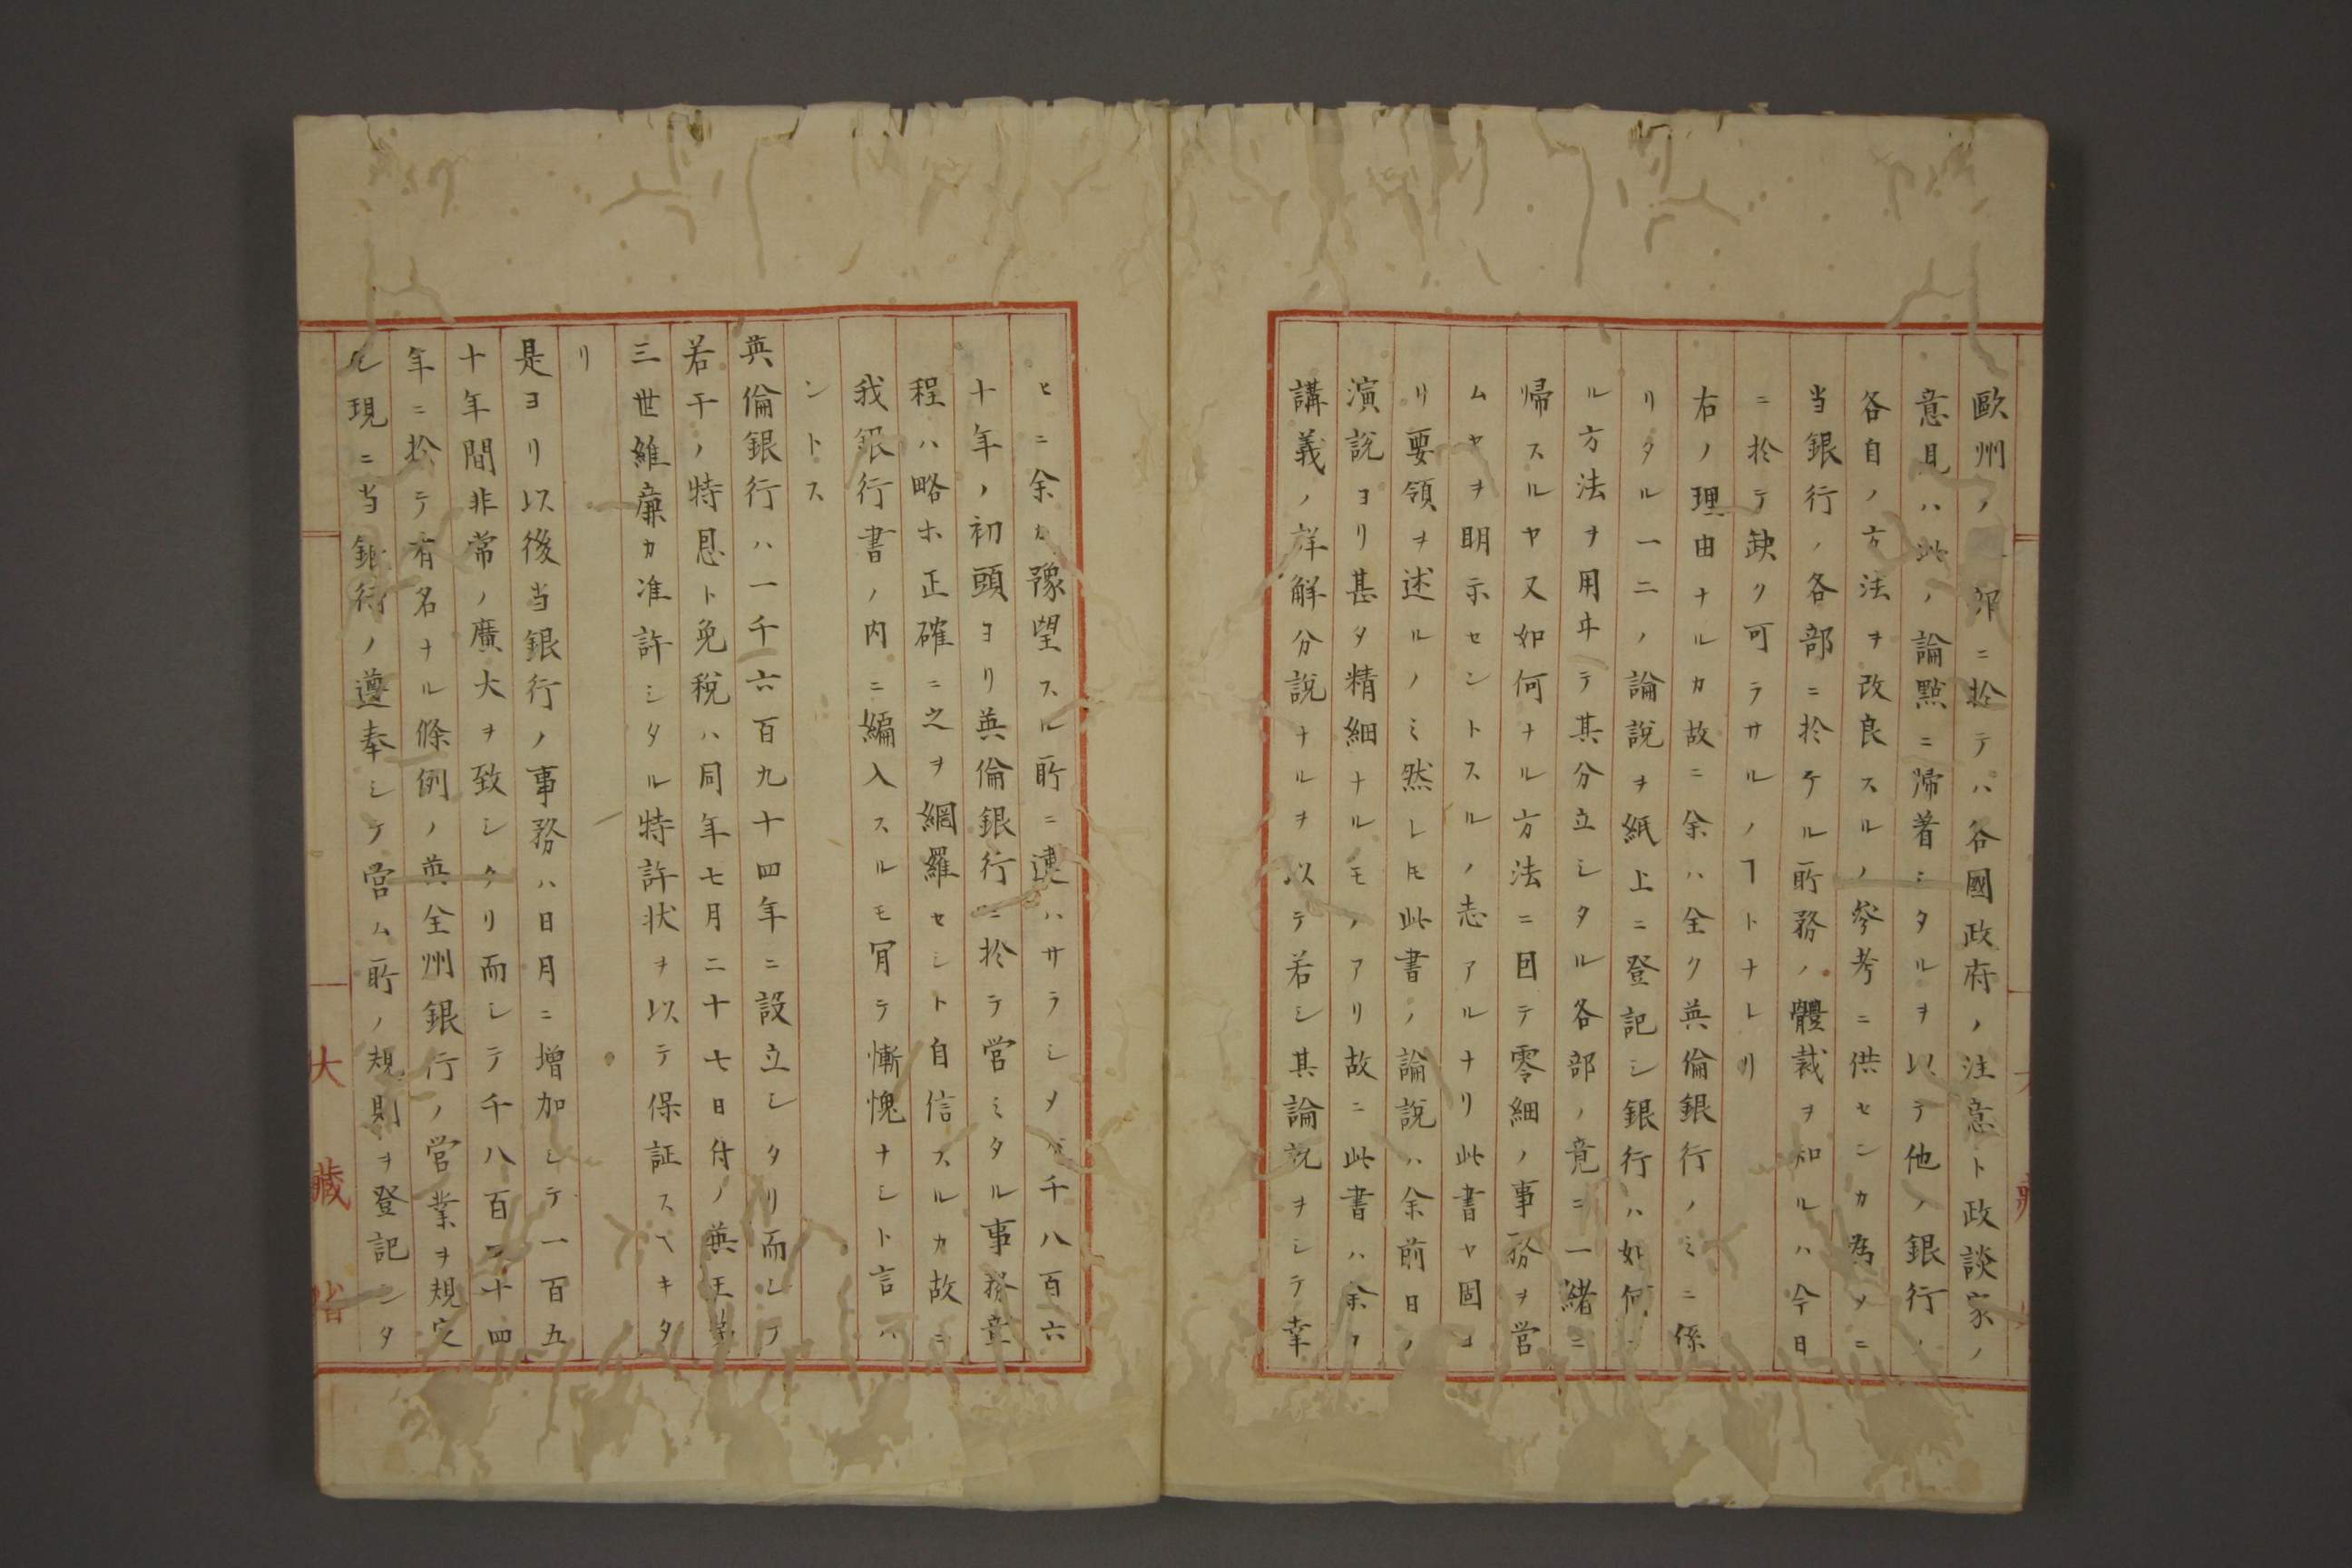 歐州ノ一部ニ於テハ各國政府ノ注意ト政談家ノ
意見ハ此ノ論點ニ帰着シタルヲ以テ他ノ銀行ノ
各自ノ方法ヲ改良スルノ參考ニ供センカ為メニ
当銀行ノ各部ニ於ケル所務ノ體裁ヲ知ルハ今日
ニ於テ缺ク可ラサルノヿトナレリ
右ノ理由ナルカ故ニ余ハ全ク英倫銀行ノミニ係
リタル一二ノ論說ヲ紙上ニ登記シ銀行ハ如何ニ
ル方法ヲ用ヰテ其分立シタル各部ノ竟ニ一緒ニ
帰スルヤ又如何ナル方法ニ因テ零細ノ事務ヲ営
ムヤヲ明示セントスルノ志アルナリ此書ヤ固ヨ
リ要領ヲ述ルノミ然レ𪜈此書ノ論說ハ余前日ノ
演說ヨリ甚タ精細ナルモノアリ故ニ此書ハ余カ
講義ノ詳解分說ナルヲ以テ若シ其論説ヲシテ幸
ヒニ余カ豫望スル所ニ違ハサラシメハ千八百六
十年ノ初頭ヨリ英倫銀行ニ於テ営ミタル事務章
程ハ略ホ正確ニ之ヲ網羅セシト自信スルカ故ニ
我銀行書ノ内ニ編入スルモ冐テ慚愧ナシト言ハ
ントス
英倫銀行ハ一千六百九十四年ニ設立シタリ而シテ
若干ノ特恩ト免税ハ同年七月二十七日付ノ英王第
三世維廉カ准許シタル特許状ヲ以テ保証スヘキタ
リ
是ヨリ以後当銀行ノ事務ハ日月ニ増加シテ一百五
十年間非常ノ廣大ヲ致シタリ而シテ千八百四十四
年ニ於テ有名ナル條例ノ英全州銀行ノ営業ヲ規定
ル現ニ当銀行ノ遵奉シテ営ム所ノ規則ヲ登記シタ
大藏省